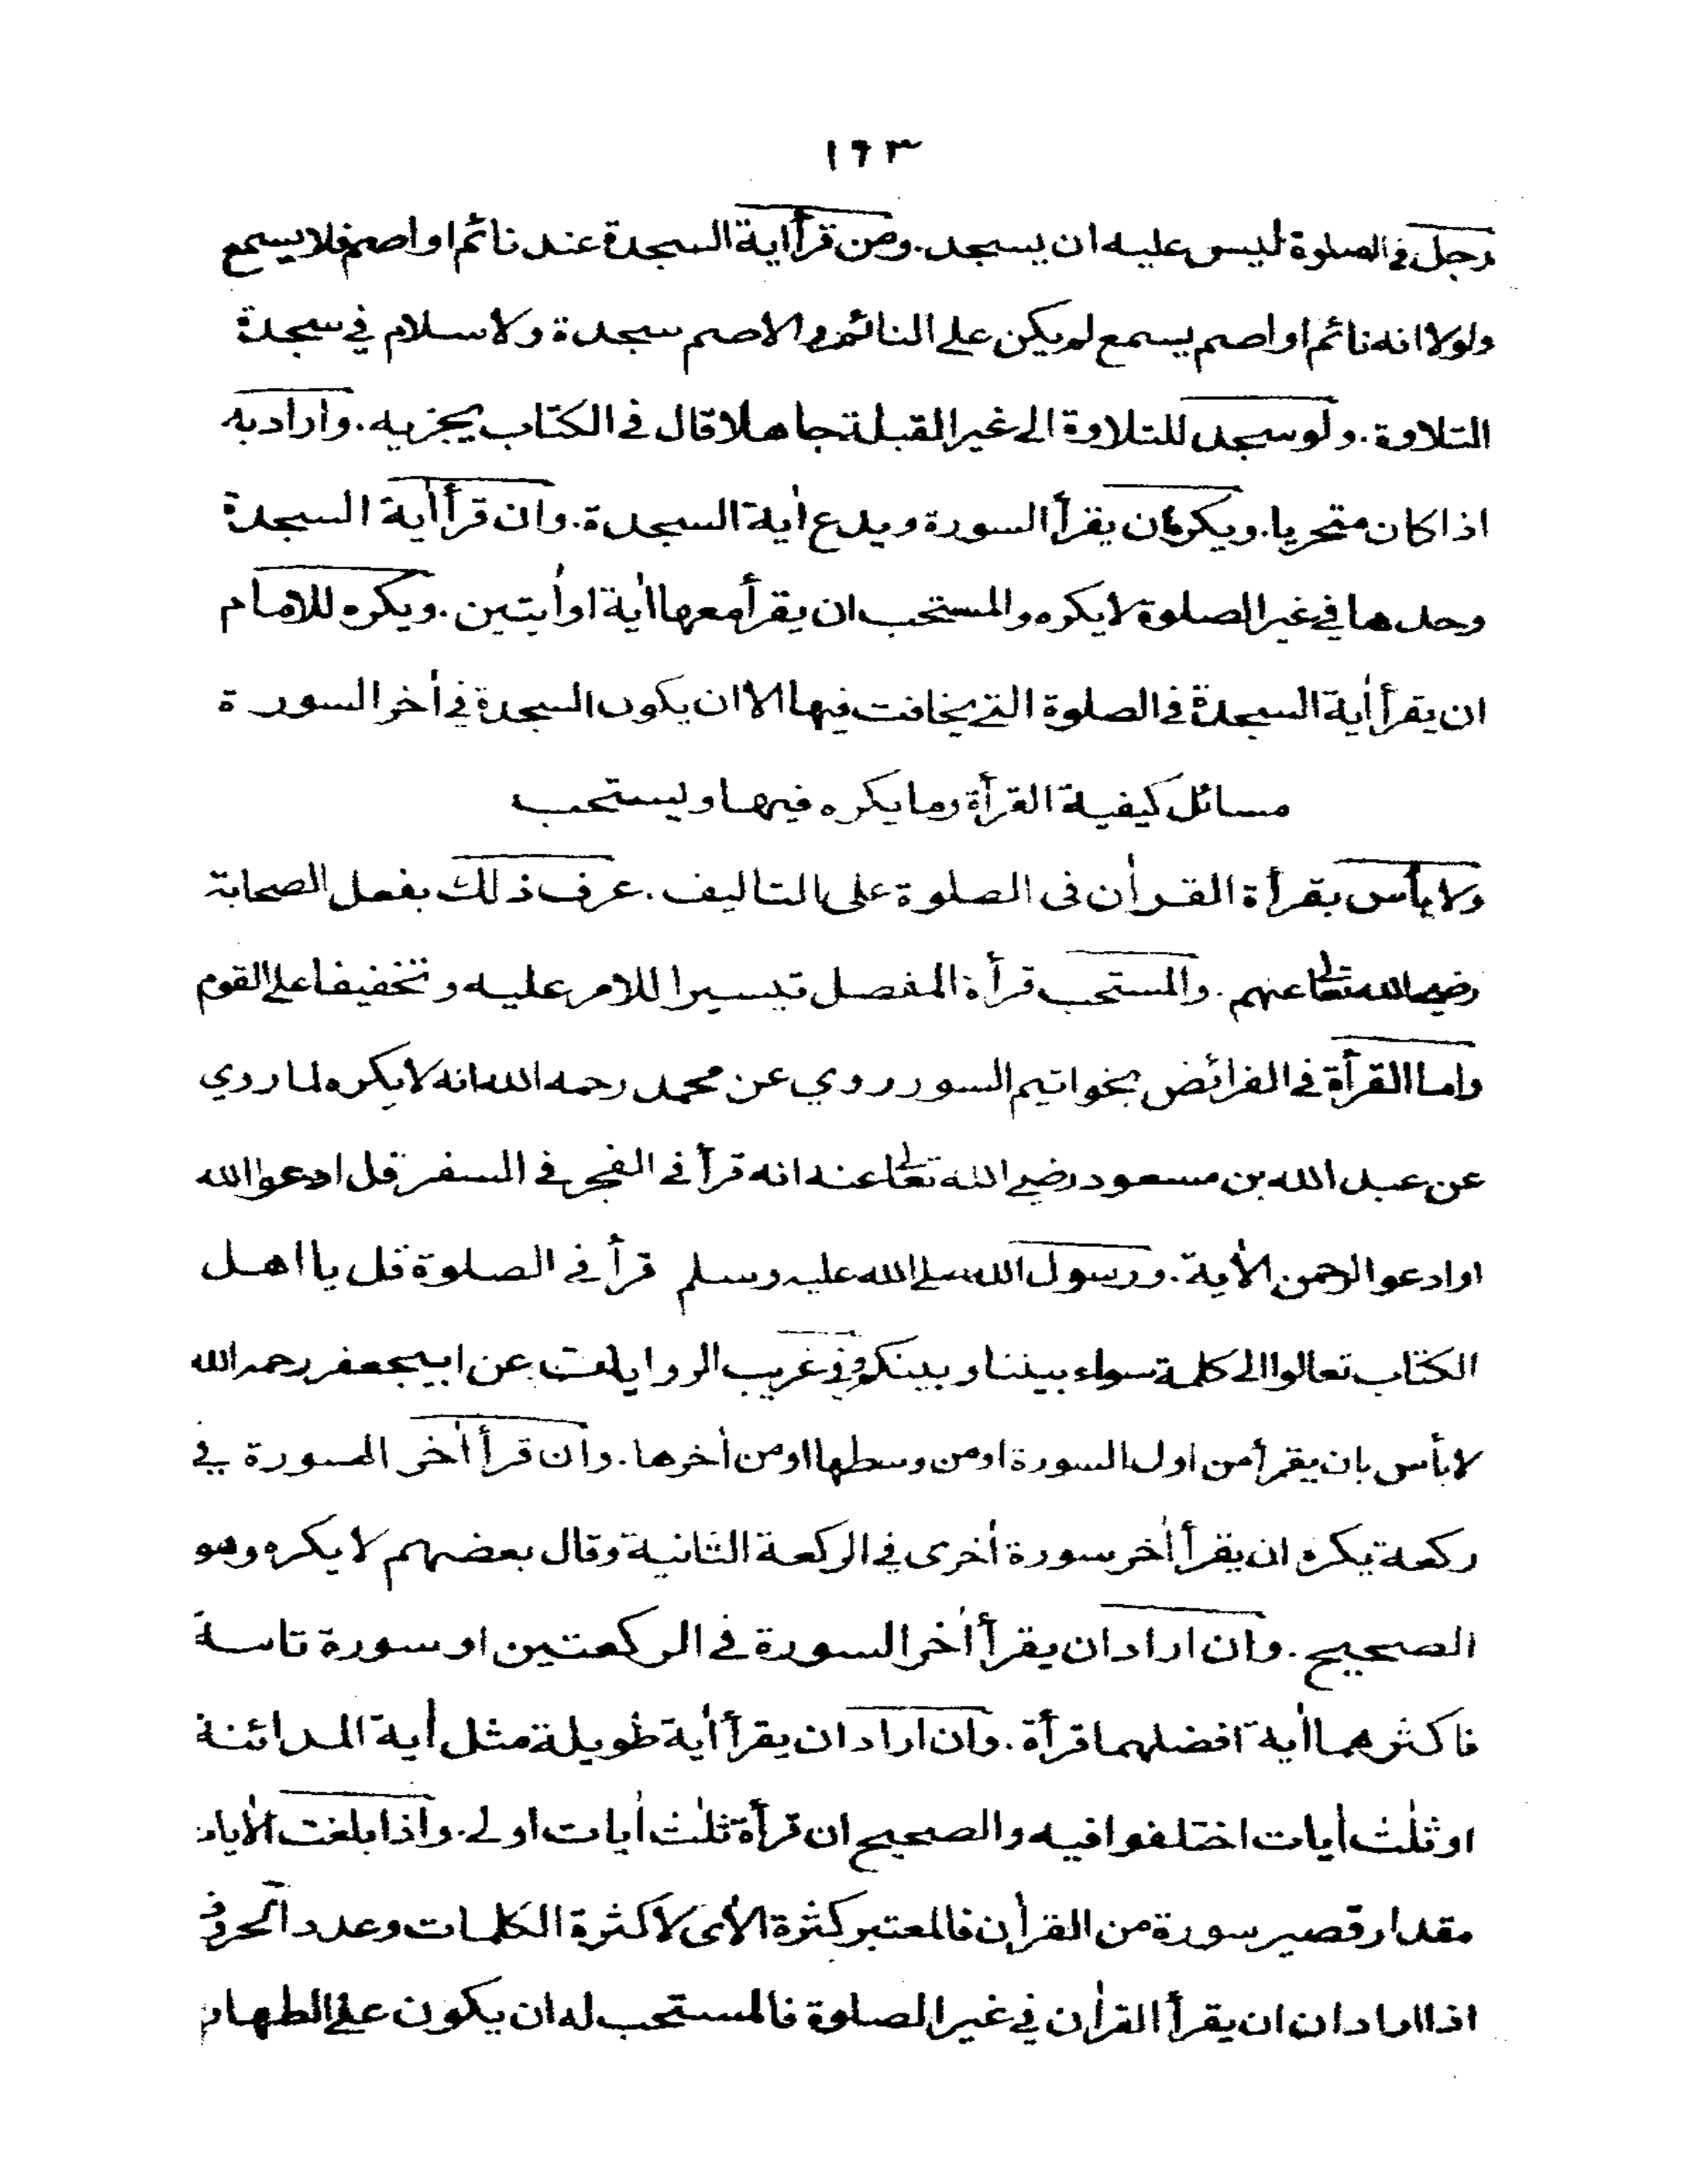 ١٦٣
رجل في الصلوة ليس عليه ان يسجد. ومن قرأ اية السجدة عند نائم او اصم فلا يسمع
ولولا انه نائم او اصم يسمع لم يكن على النائم والاصم سجدة ولا سلام في سجدة
التلاوة. ولو سجد للتلاوة الى غير القبلة جاهلا قال في الكتاب يجزيه. واراد به
اذا كان متحريا. ويكره ان يقرأ السورة ويدع اٰية السجدة. وان قرأ اٰية السجدة
وحدها في غير الصلوة لا يكره والمستحب ان يقرأ معها اٰية او اٰيتين. ويكره للامام
ان يقرأ اٰية السجدة في الصلوة التي يخافت فيها الا ان يكون السجدة في اٰخر السورة
مسائل كيفية القرأة وما يكره فيها ويستحب
ولا بأس بقرأة القراٰن فى الصلوة على التاليف. عرف ذلك بفعل الصحابة
رضي الله تعالى عنهم. والمستحب قرأة المفصل تيسيرا للامر عليه و تخفيفا على القوم
واما القرأة في الفرائض بخواتيم السور روي عن محمد رحمه الله انه لا يكره لما روي
عن عبد الله بن مسعود رضي الله تعالى عنه انه قرأ في الفجر في السفر قل ادعوا الله
او ادعوا الرحمن الاٰية. ورسول الله صلى الله عليه وسلم قرأ في الصلوة قل يا اهل
الكتاب تعالوا الى كلمة سواء بيننا وبينكم وفي غريب الروايات عن ابي جعفر رحمه الله
لا بأس بان يقرأ من اول السورة او من وسطها او من اٰخرها. وان قرأ اٰخر السورة في
ركعة يكره ان يقرأ اٰخر سورة اٰخرى في الركعة الثانية وقال بعضهم لا يكره وهو
الصحيح. وان اراد ان يقرأ اٰخر السورة في الركعتين او سورة تامة
فاكثرهما اٰية افضلهما قرأة. وان اراد ان يقرأ اٰية طويلة مثل اٰية المدائنة
او ثلٰث اٰيات اختلفوا فيه والصحيح ان قرأة ثلٰث اٰيات اولى. واذا بلغت الاٰيات
مقدار قصير سورة من القراٰن فالمعتبر كثرة الاٰى لا كثرة الكلمات وعدد الحروف
اذا اراد ان ان يقرأ القراٰن في غير الصلوة فالمستحب له ان يكون على الطهارة